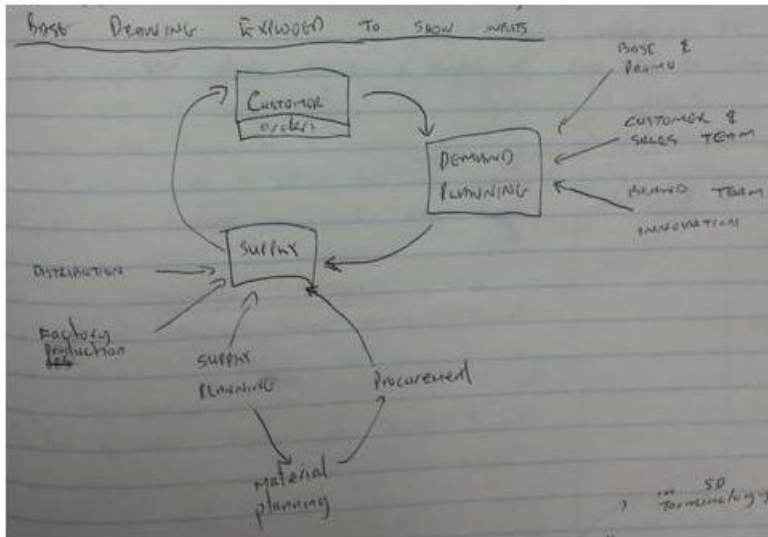 BASE DRAWING EXPLODED TO SHOW INPUTS
CUSTOMER
orders
BASE &
PROMO
CUSTOMER &
SALES TEAM
DEMAND
PLANNING
BRAND TEAM
INNOVATION
SUPPLY
DISTRIBUTION
Factory
Production
SUPPLY
PLANNING
Procurement
Material
planning
in SD
Terminology